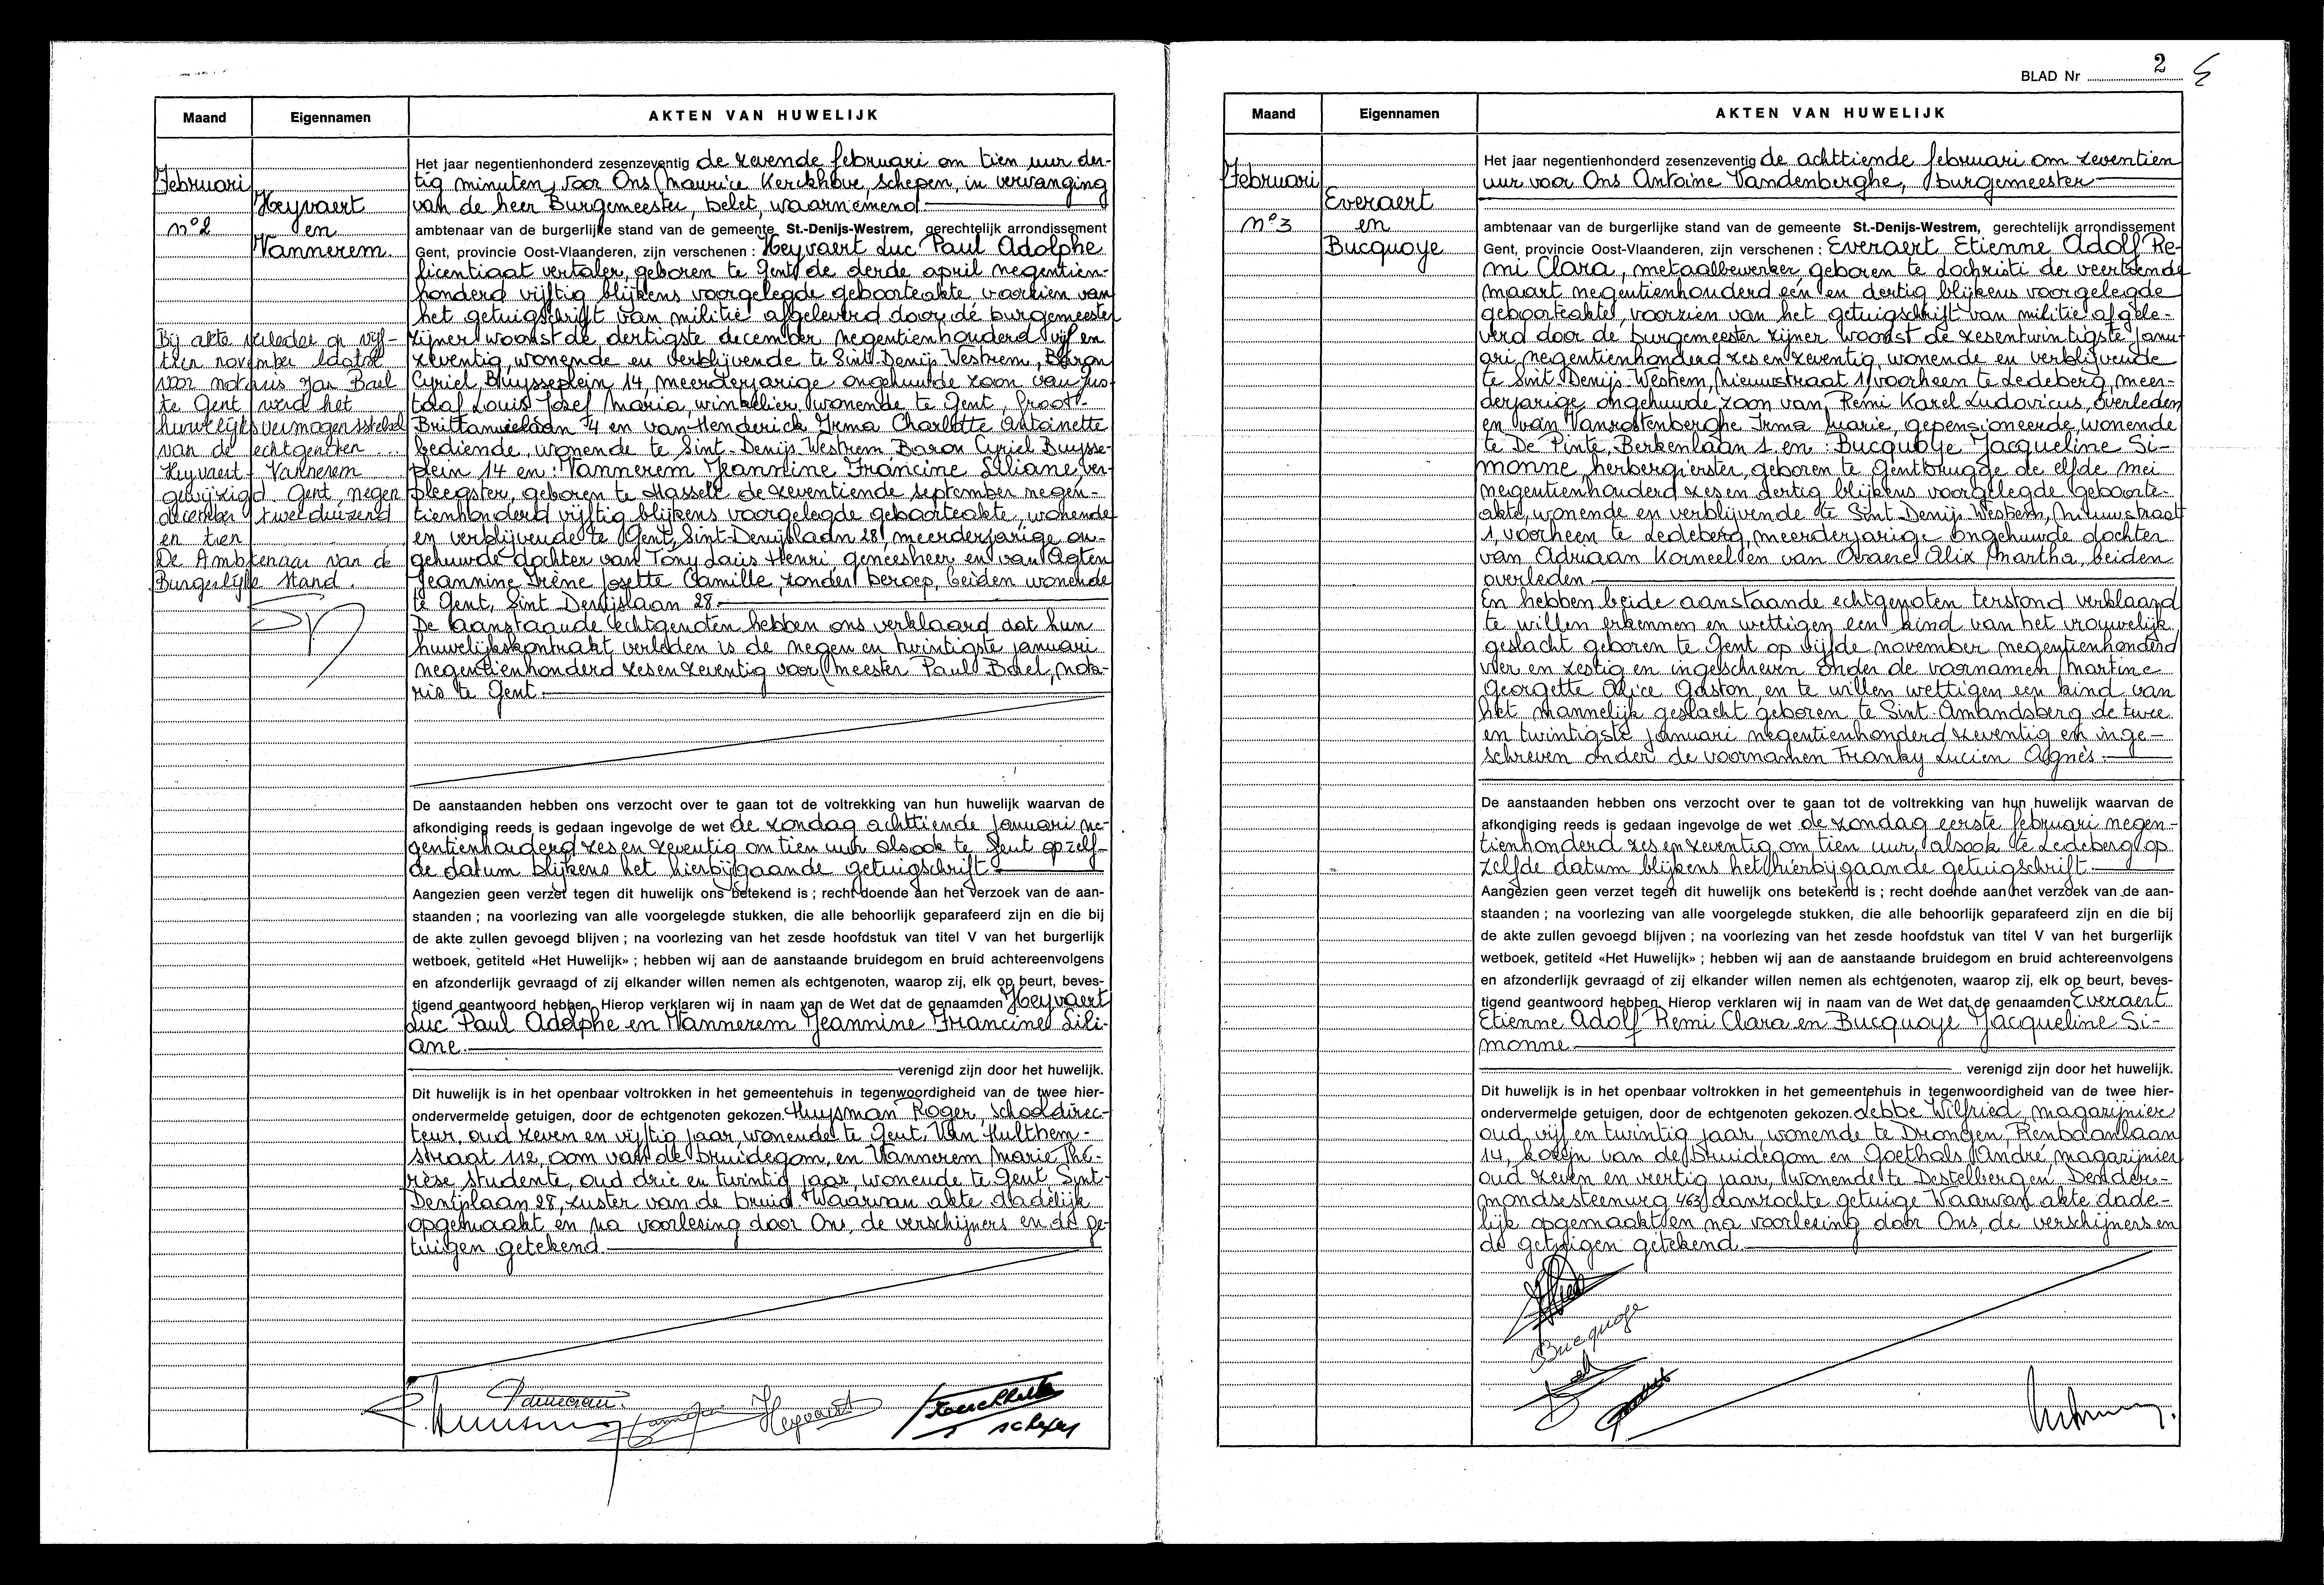 Maand
Eigennamen
AKTEN VAN HUWELIJK
Februari
n° 2
Heyvaert
en
Vannerem
Bij akte verleden op vijf-
tien november laatst
voor notaris Jan Bael
te Gent werd het
huwelijksvermogensstelsel
van de echtgenoten ...
Heyvaert - Vannerem
gewijzigd. Gent, negen
december tweeduizend
en tien
De Ambtenaar van de
Burgerlijke stand.
Het jaar negentienhonderd zesenzeventig de zevende februari om tien uur der-
tig minuten, voor Ons Maurice Kerckhove, schepen, in vervanging
van de heer Burgemeester, belet, waarnemend
ambtenaar van de burgerlijke stand van de gemeente St.-Denijs-Westrem, gerechtelijk arrondissement
Gent, provincie Oost-Vlaanderen, zijn verschenen : Heyvaert Luc Paul Adolphe
licentiaat vertaler, geboren te Gent de derde april negentien-
honderd vijftig blijkens voorgelegde geboorteakte, voorzien van
het getuigschrift van militie afgeleverd door de burgemeester
zijner woonst de dertigste december negentienhonderd vijf en
zeventig, wonende en verblijvende te Sint-Denijs-Westrem, Baron
Cyriel Buysseplein 14, meerderjarige ongehuwde zoon van Gus-
taaf Louis Josef Maria, winkelier, wonende te Gent, Groot-
Brittannielaan 74 en van Henderick Irma Charlotte Antoinette
bediende, wonende te Sint-Denijs-Westrem Baron Cyriel Buysse-
plein 14 en : Vannerem Jeannine Francine Liliane, ver-
pleegster, geboren te Hasselt de zeventiende september negen-
tienhonderd vijftig blijkens voorgelegde geboorteakte, wonende
en verblijvende te Gent, Sint-Denijslaan 28, meerderjarige on-
gehuwde dochter van Tony Louis Henri, geneesheer en van Agten
Jeannine Irène Josette Camille, zonder beroep, beiden wonende
te Gent, Sint Denijslaan 28.
De aanstaande echtgenoten hebben ons verklaard dat hun
huwelijkskontrakt verleden is de negen en twintigste januari
negentienhonderd zesenzeventig voor meester Paul Bael, nota-
ris te Gent
De aanstaanden hebben ons verzocht over te gaan tot de voltrekking van hun huwelijk waarvan de
afkondiging reeds is gedaan ingevolge de wet de zondag achttiende januari ne-
gentienhonderd zesenzeventig om tien uur alsook te Gent op zelf-
de datum blijkens het hierbijgaande getuigschrift
Aangezien geen verzet tegen dit huwelijk ons betekend is ; recht doende aan het verzoek van de aan-
staanden ; na voorlezing van alle voorgelegde stukken, die alle behoorlijk geparafeerd zijn en die bij
de akte zullen gevoegd blijven ; na voorlezing van het zesde hoofdstuk van titel V van het burgerlijk
wetboek, getiteld «Het Huwelijk» ; hebben wij aan de aanstaande bruidegom en bruid achtereenvolgens
en afzonderlijk gevraagd of zij elkander willen nemen als echtgenoten, waarop zij, elk op beurt, beves-
tigend geantwoord hebben. Hierop verklaren wij in naam van de Wet dat de genaamden Heyvaert
Luc Paul Adolphe en Vannerem Jeannine Francine Lili-
ane
verenigd zijn door het huwelijk.
Dit huwelijk is in het openbaar voltrokken in het gemeentehuis in tegenwoordigheid van de twee hier-
ondervermelde getuigen, door de echtgenoten gekozen. Huysman Roger, schooldirec-
teur, oud zeven en vijftig jaar, wonende te Gent, Van Hulthem-
straat 112, oom van de bruidegom, en Vannerem Marie Thé-
rèse studente, oud drie en twintig jaar, wonende te Gent Sint-
Denijslaan 28, zuster van de bruid. Waarvan akte dadelijk
opgemaakt en na voorlezing door Ons, de verschijners en de ge-
tuigen getekend
Heyvaert
schepen
BLAD Nr 2
Maand
Eigennamen
AKTEN VAN HUWELIJK
Februari
n° 3
Everaert
en
Bucquoye
Het jaar negentienhonderd zesenzeventig de achttiende februari om zeventien
uur voor Ons Antoine Vandenberghe, burgemeester
ambtenaar van de burgerlijke stand van de gemeente St.-Denijs-Westrem, gerechtelijk arrondissement
Gent, provincie Oost-Vlaanderen, zijn verschenen : Everaert Etienne Adolf Re-
mi Clara, metaalbewerker, geboren te Lochristi de veertiende
maart negentienhonderd één en dertig blijkens voorgelegde
geboorteakte, voorzien van het getuigschrift van militie afgele-
verd door de burgemeester zijner woonst de zesentwintigste janu-
ari negentienhonderd zes en zeventig, wonende en verblijvende
te Sint Denijs-Westrem, Nieuwstraat 1, voorheen te Ledeberg, meer-
derjarige ongehuwde zoon van Remi Karel Ludovicus, overleden
en van Vanrostenberghe Irma Marie, gepensioneerde, wonende
te De Pinte, Berkenlaan 1. en : Bucquoye Jacqueline Si-
monne, herbergierster, geboren te Gentbrugge de elfde mei
negentienhonderd zes en dertig blijkens voorgelegde geboorte-
akte, wonende en verblijvende te Sint Denijs-Westrem, Nieuwstraat
1, voorheen te Ledeberg, meerderjarige ongehuwde dochter
van Adriaan Korneel en van Ovaere Alix Martha, beiden
overleden
En hebben beide aanstaande echtgenoten terstond verklaard
te willen erkennen en wettigen een kind van het vrouwelijk
geslacht geboren te Gent op vijfde november negentienhonderd
vier en zestig en ingeschreven onder de voornamen Martine
Georgette Alice Gaston, en te willen wettigen een kind van
het mannelijk geslacht geboren te Sint-Amandsberg de twee
en twintigste januari negentienhonderd zeventig en inge-
schreven onder de voornamen Franky Lucien Agnès
De aanstaanden hebben ons verzocht over te gaan tot de voltrekking van hun huwelijk waarvan de
afkondiging reeds is gedaan ingevolge de wet de zondag eerste februari negen-
tienhonderd zes en zeventig om tien uur, alsook te Ledeberg op
zelfde datum blijkens het hierbijgaande getuigschrift
Aangezien geen verzet tegen dit huwelijk ons betekend is ; recht doende aan het verzoek van de aan-
staanden ; na voorlezing van alle voorgelegde stukken, die alle behoorlijk geparafeerd zijn en die bij
de akte zullen gevoegd blijven ; na voorlezing van het zesde hoofdstuk van titel V van het burgerlijk
wetboek, getiteld «Het Huwelijk» ; hebben wij aan de aanstaande bruidegom en bruid achtereenvolgens
en afzonderlijk gevraagd of zij elkander willen nemen als echtgenoten, waarop zij, elk op beurt, beves-
tigend geantwoord hebben. Hierop verklaren wij in naam van de Wet dat de genaamden Everaert
Etienne Adolf Remi Clara en Bucquoye Jacqueline Si-
monne
verenigd zijn door het huwelijk.
Dit huwelijk is in het openbaar voltrokken in het gemeentehuis in tegenwoordigheid van de twee hier-
ondervermelde getuigen, door de echtgenoten gekozen. Lebbe Wilfried, magazijnier
oud vijf en twintig jaar, wonende te Drongen, Renbaanlaan
14, kozijn van de bruidegom en Goethals André, magazijnier
oud zeven en veertig jaar, wonende te Destelbergen Dender-
mondsesteenweg 463, aanzochte getuige Waarvan akte dade-
lijk opgemaakt en na voorlezing door Ons, de verschijners en
de getuigen getekend
Bucquoye